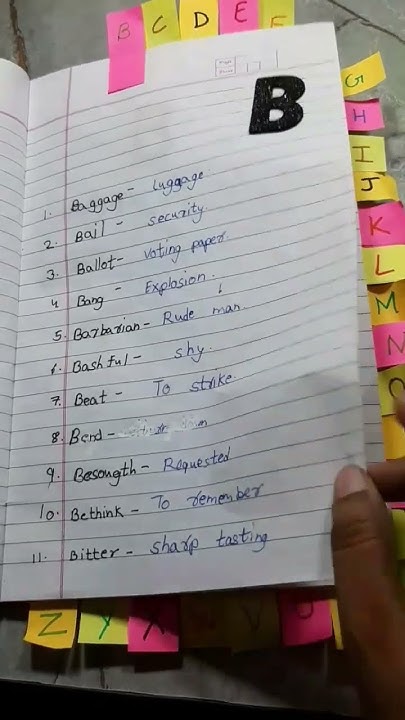 B
C
D
E
F
Page
17
B
G
H
I
J
K
L
M
N
1. Baggage - Luggage
2. Bail - security.
3. Ballot - voting paper.
4 Bang - Explosion.
5. Barbarian - Rude man
6. Bashful - shy.
7. Beat - To strike.
8. Bend -
9. Besongth - Requested
10. Bethink - To remember
11. Bitter - sharp tasting
Z
Y
X
V
U